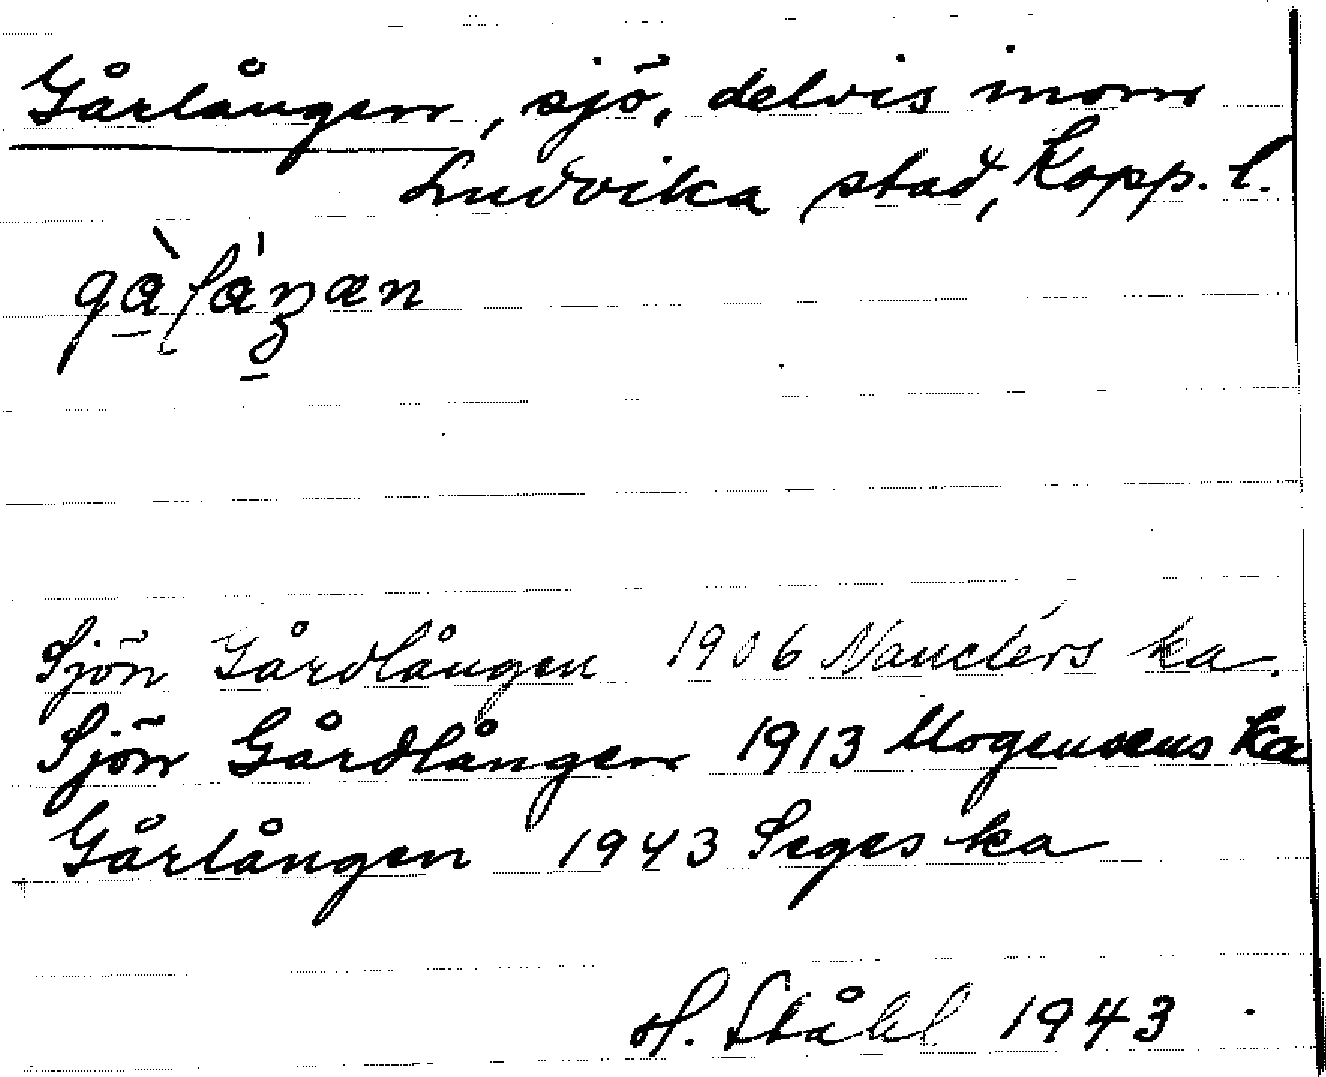 Gårlången, sjö, delvis inom
Ludvika stad, Kopp. l.
Sjön Gårdlången 1906 Nauclérs ka.
Sjön Gårdlången 1913 Mogensens ka
Gårlången 1943 Seges ka
H. Ståhl 1943